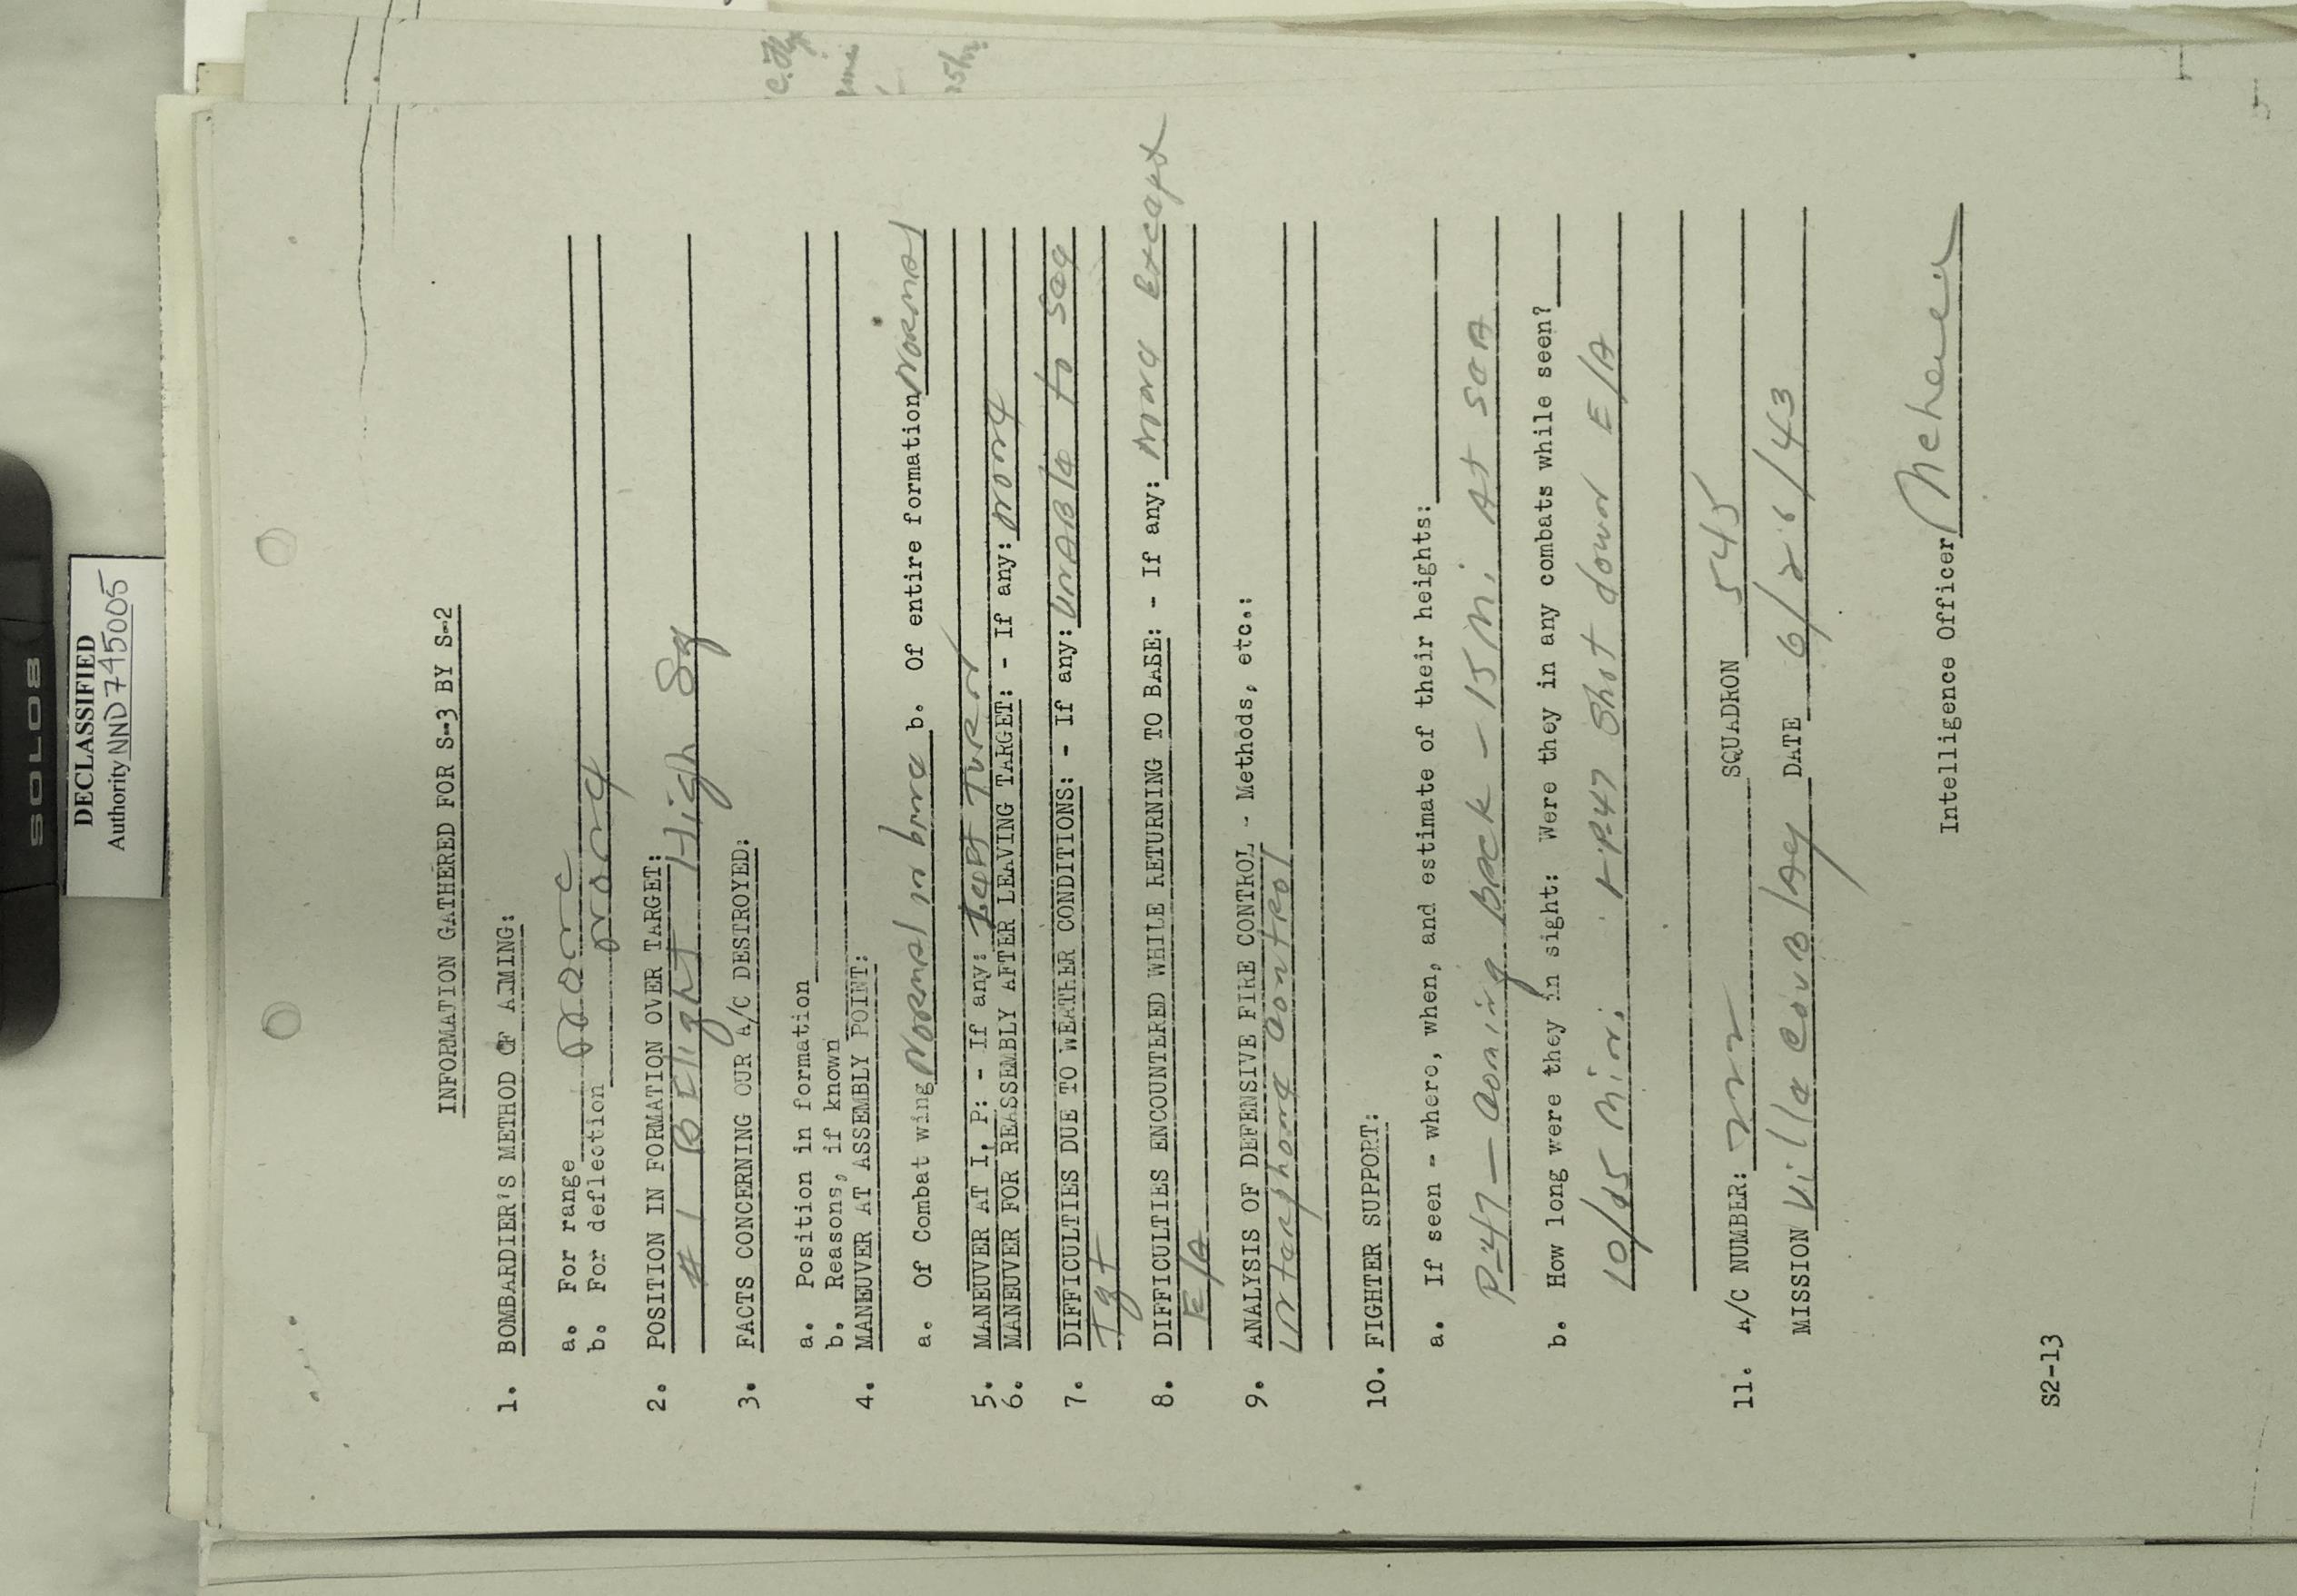 SOLO8
DECLASSIFIED
Authority NND 745005
INFORMATION GATHERED FOR S-3 BY S-2
1. BOMBARDIER'S METHOD OF AIMING:
a. For range None
b. For deflection None
2. POSITION IN FORMATION OVER TARGET:
# 1 B Flight High Sq
3. FACTS CONCERNING OUR A/C DESTROYED:
a. Position in formation
b. Reasons, if known
4. MANEUVER AT ASSEMBLY POINT:
a. Of Combat wing Normal b. Of entire formation Normal
5. MANEUVER AT I. P: - If any: Left Turn
6. MANEUVER FOR REASSEMBLY AFTER LEAVING TARGET: - If any: None
7. DIFFICULTIES DUE TO WEATHER CONDITIONS: - If any: Unable to see
Tgt
8. DIFFICULTIES ENCOUNTERED WHILE RETURNING TO BASE: - If any: None Except
E/A
9. ANALYSIS OF DEFENSIVE FIRE CONTROL - Methods, etc.:
Interphone Control
10. FIGHTER SUPPORT:
a. If seen - where, when, and estimate of their heights:
P-47 — Coming Back - 15 Mi. At Sea
b. How long were they in sight: Were they in any combats while seen?
Min. 1-P-47 Shot down E/A
11. A/C NUMBER: SQUADRON 545
MISSION Villa Coublay DATE 6/26/43
Intelligence Officer
S2-13